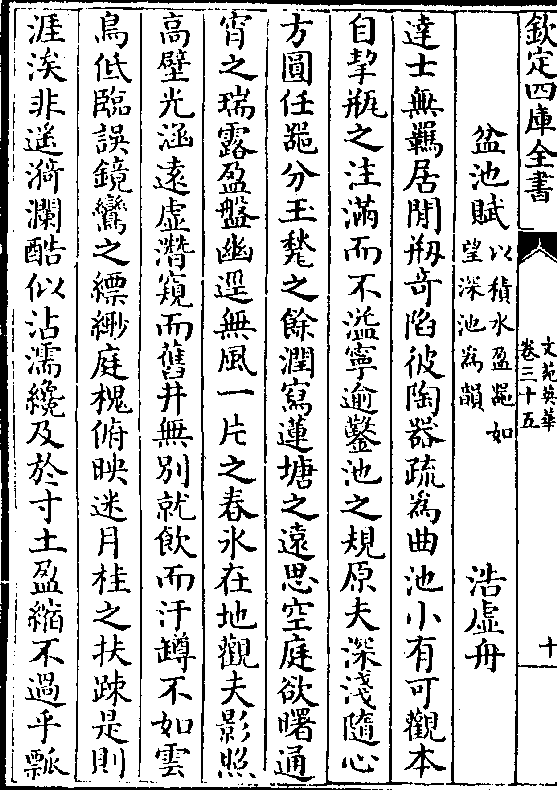 欽定四庫全書
文苑英華
卷三十五
十
盆池賦以積水盈器如
望深池為韻
浩虛舟
達士無羈居閒刱奇陷彼陶器疏為曲池小有可觀本
自挈瓶之注滿而不溢寧逾鑿池之規原夫深淺隨心
方圓任器分玉甃之餘潤寫蓮塘之遠思空庭欲曙通
宵之瑞露盈盤幽逕無風一片之春氷在地觀夫影照
高壁光涵遠虛潛窺而舊井無別就飲而汙罇不如雲
鳥低臨誤鏡鸞之縹緲庭槐俯映迷月桂之扶踈是則
涯涘非遥漪瀾酷似沾濡纔及於寸土盈縮不過乎瓢